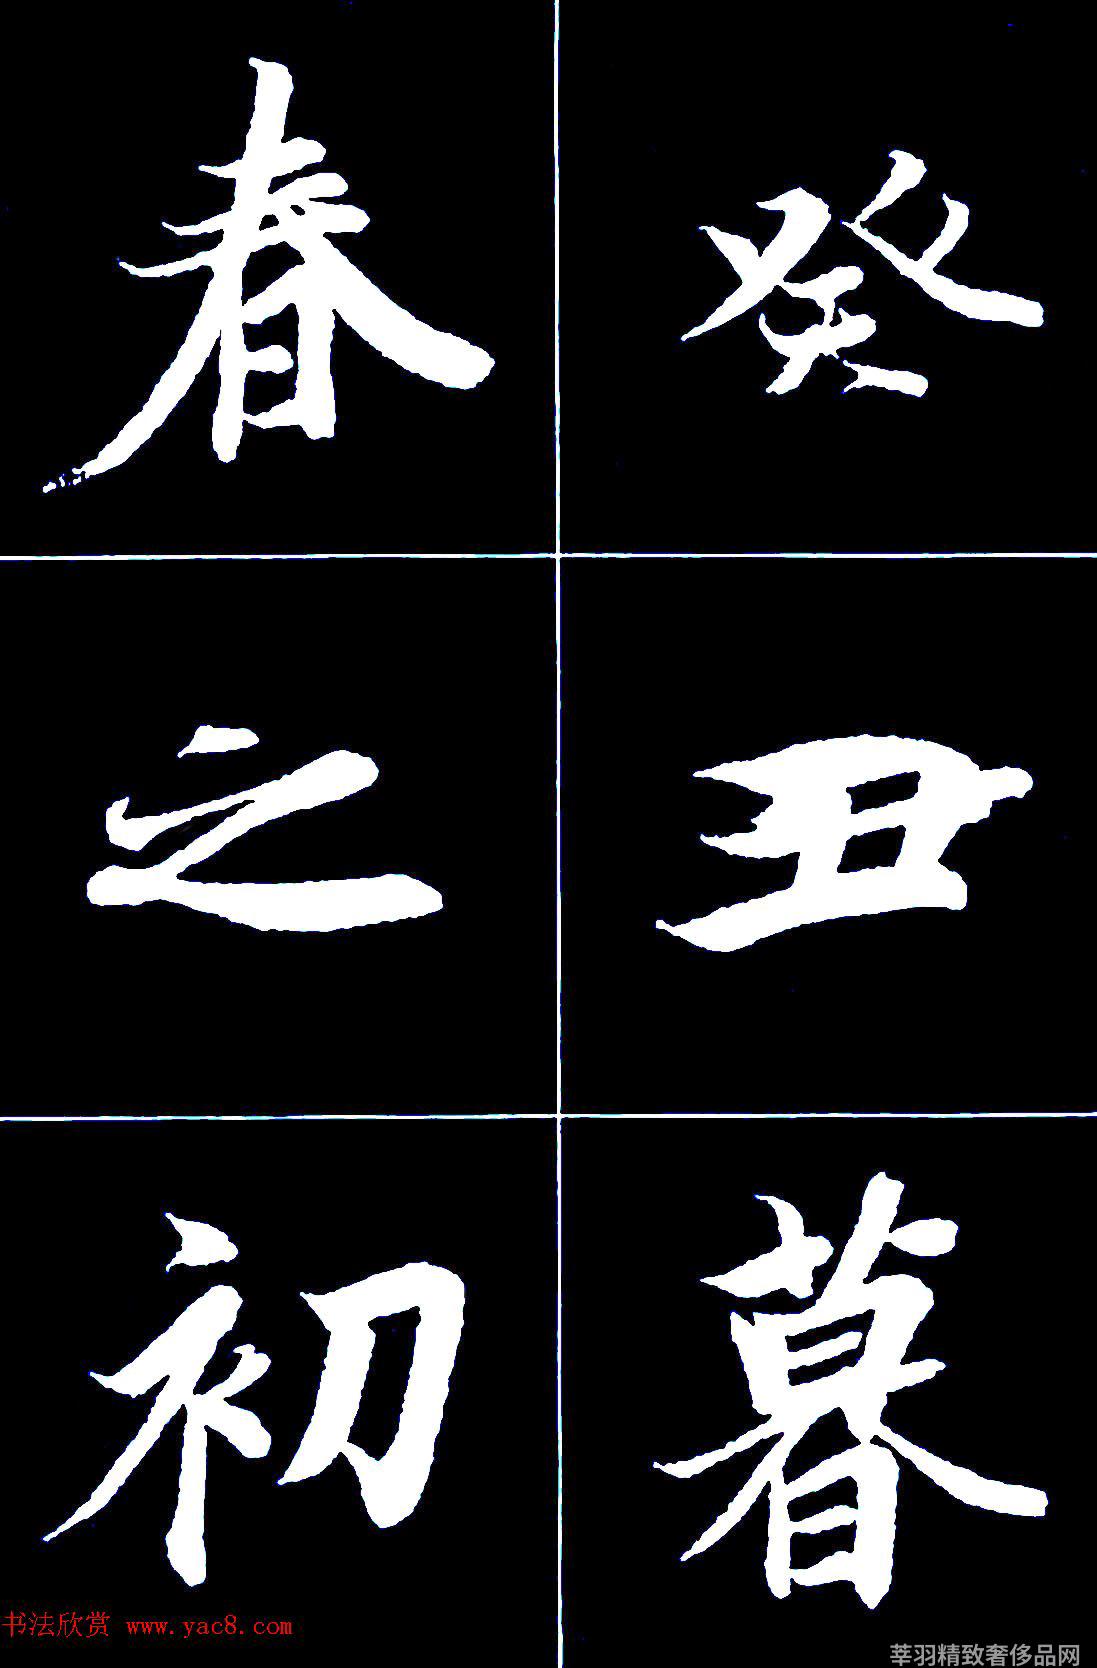 癸丑暮
春之初
书法欣赏 www.yac8.com
莘羽精致奢侈品网